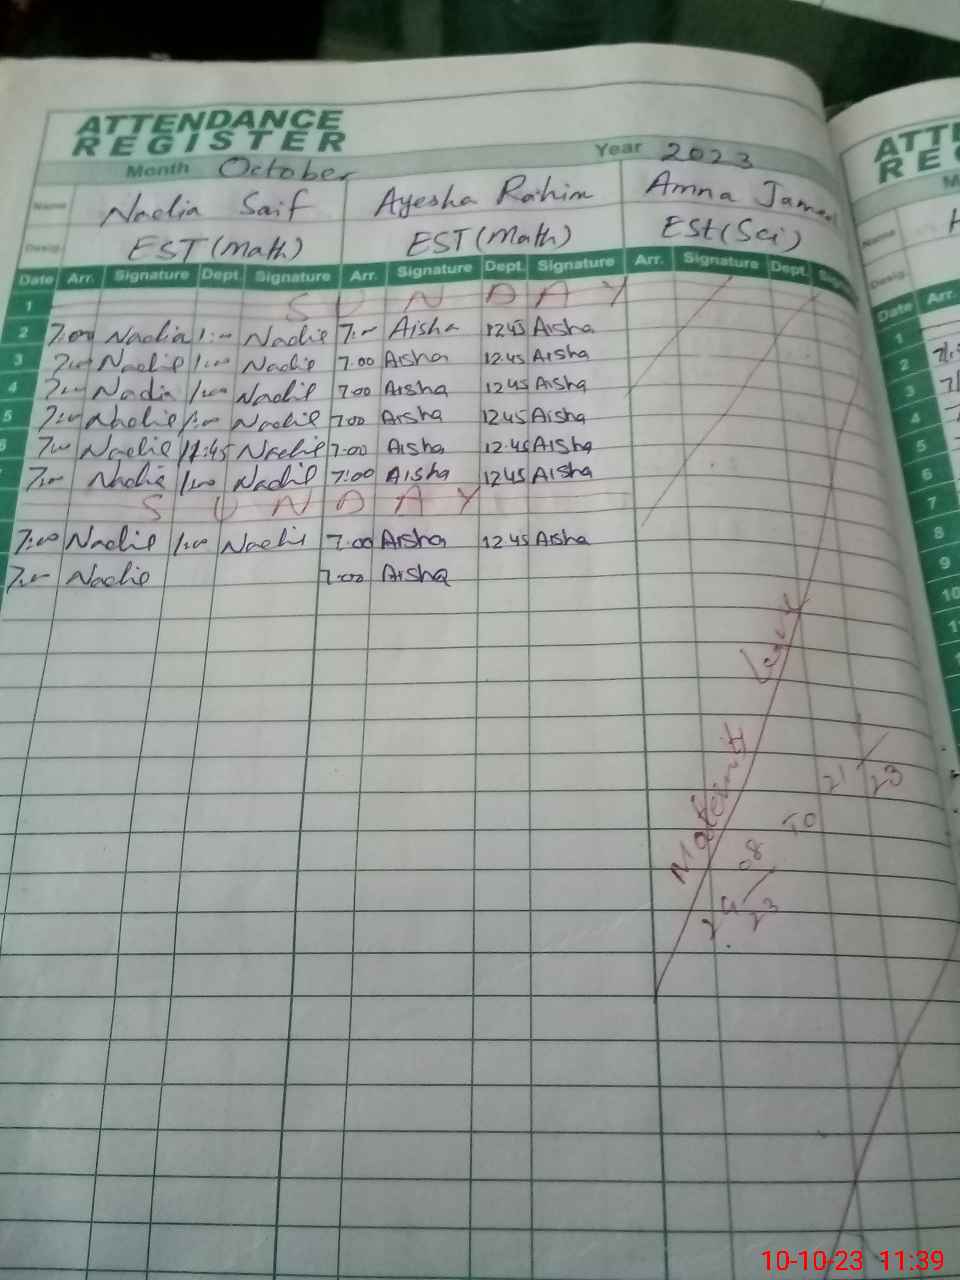 ATTENDANCE
REGISTER
Month October Year 2023
Name Nadia Saif Ayesha Rahim Amna
Desig. EST (Math) EST (Math) ESt (Sci)
Date Arr. Signature Dept. Signature Arr. Signature Dept. Signature Arr. Signature Dept. Signature
1 SUNDAY
2 7:00 Nadia 1:00 Nadia 7:00 Aisha 12 45 Aisha
3 7:00 Nadia 1:00 Nadia 7.00 Aisha 12.45 Aisha
4 7:00 Nadia 1:00 Nadia 7.00 Aisha 12 45 Aisha
5 7:00 Nadia 1:00 Nadia 7.00 Aisha 12 45 Aisha
6 7:00 Nadia 12:45 Nadia 7.00 Aisha 12.45 Aisha
7:00 Nadia 1:00 Nadia 7:00 Aisha 12 45 Aisha
SUNDAY
7:00 Nadia 1:00 Nadia 7.00 Aisha 12 45 Aisha
7:00 Nadia 7:00 Aisha
Maternity Leave
08 23 TO 21 23
ATT
RE
Name H
Desig.
Date Arr.
1
2
3
4
5
6
7
8
9
10
10-10-23 11:39